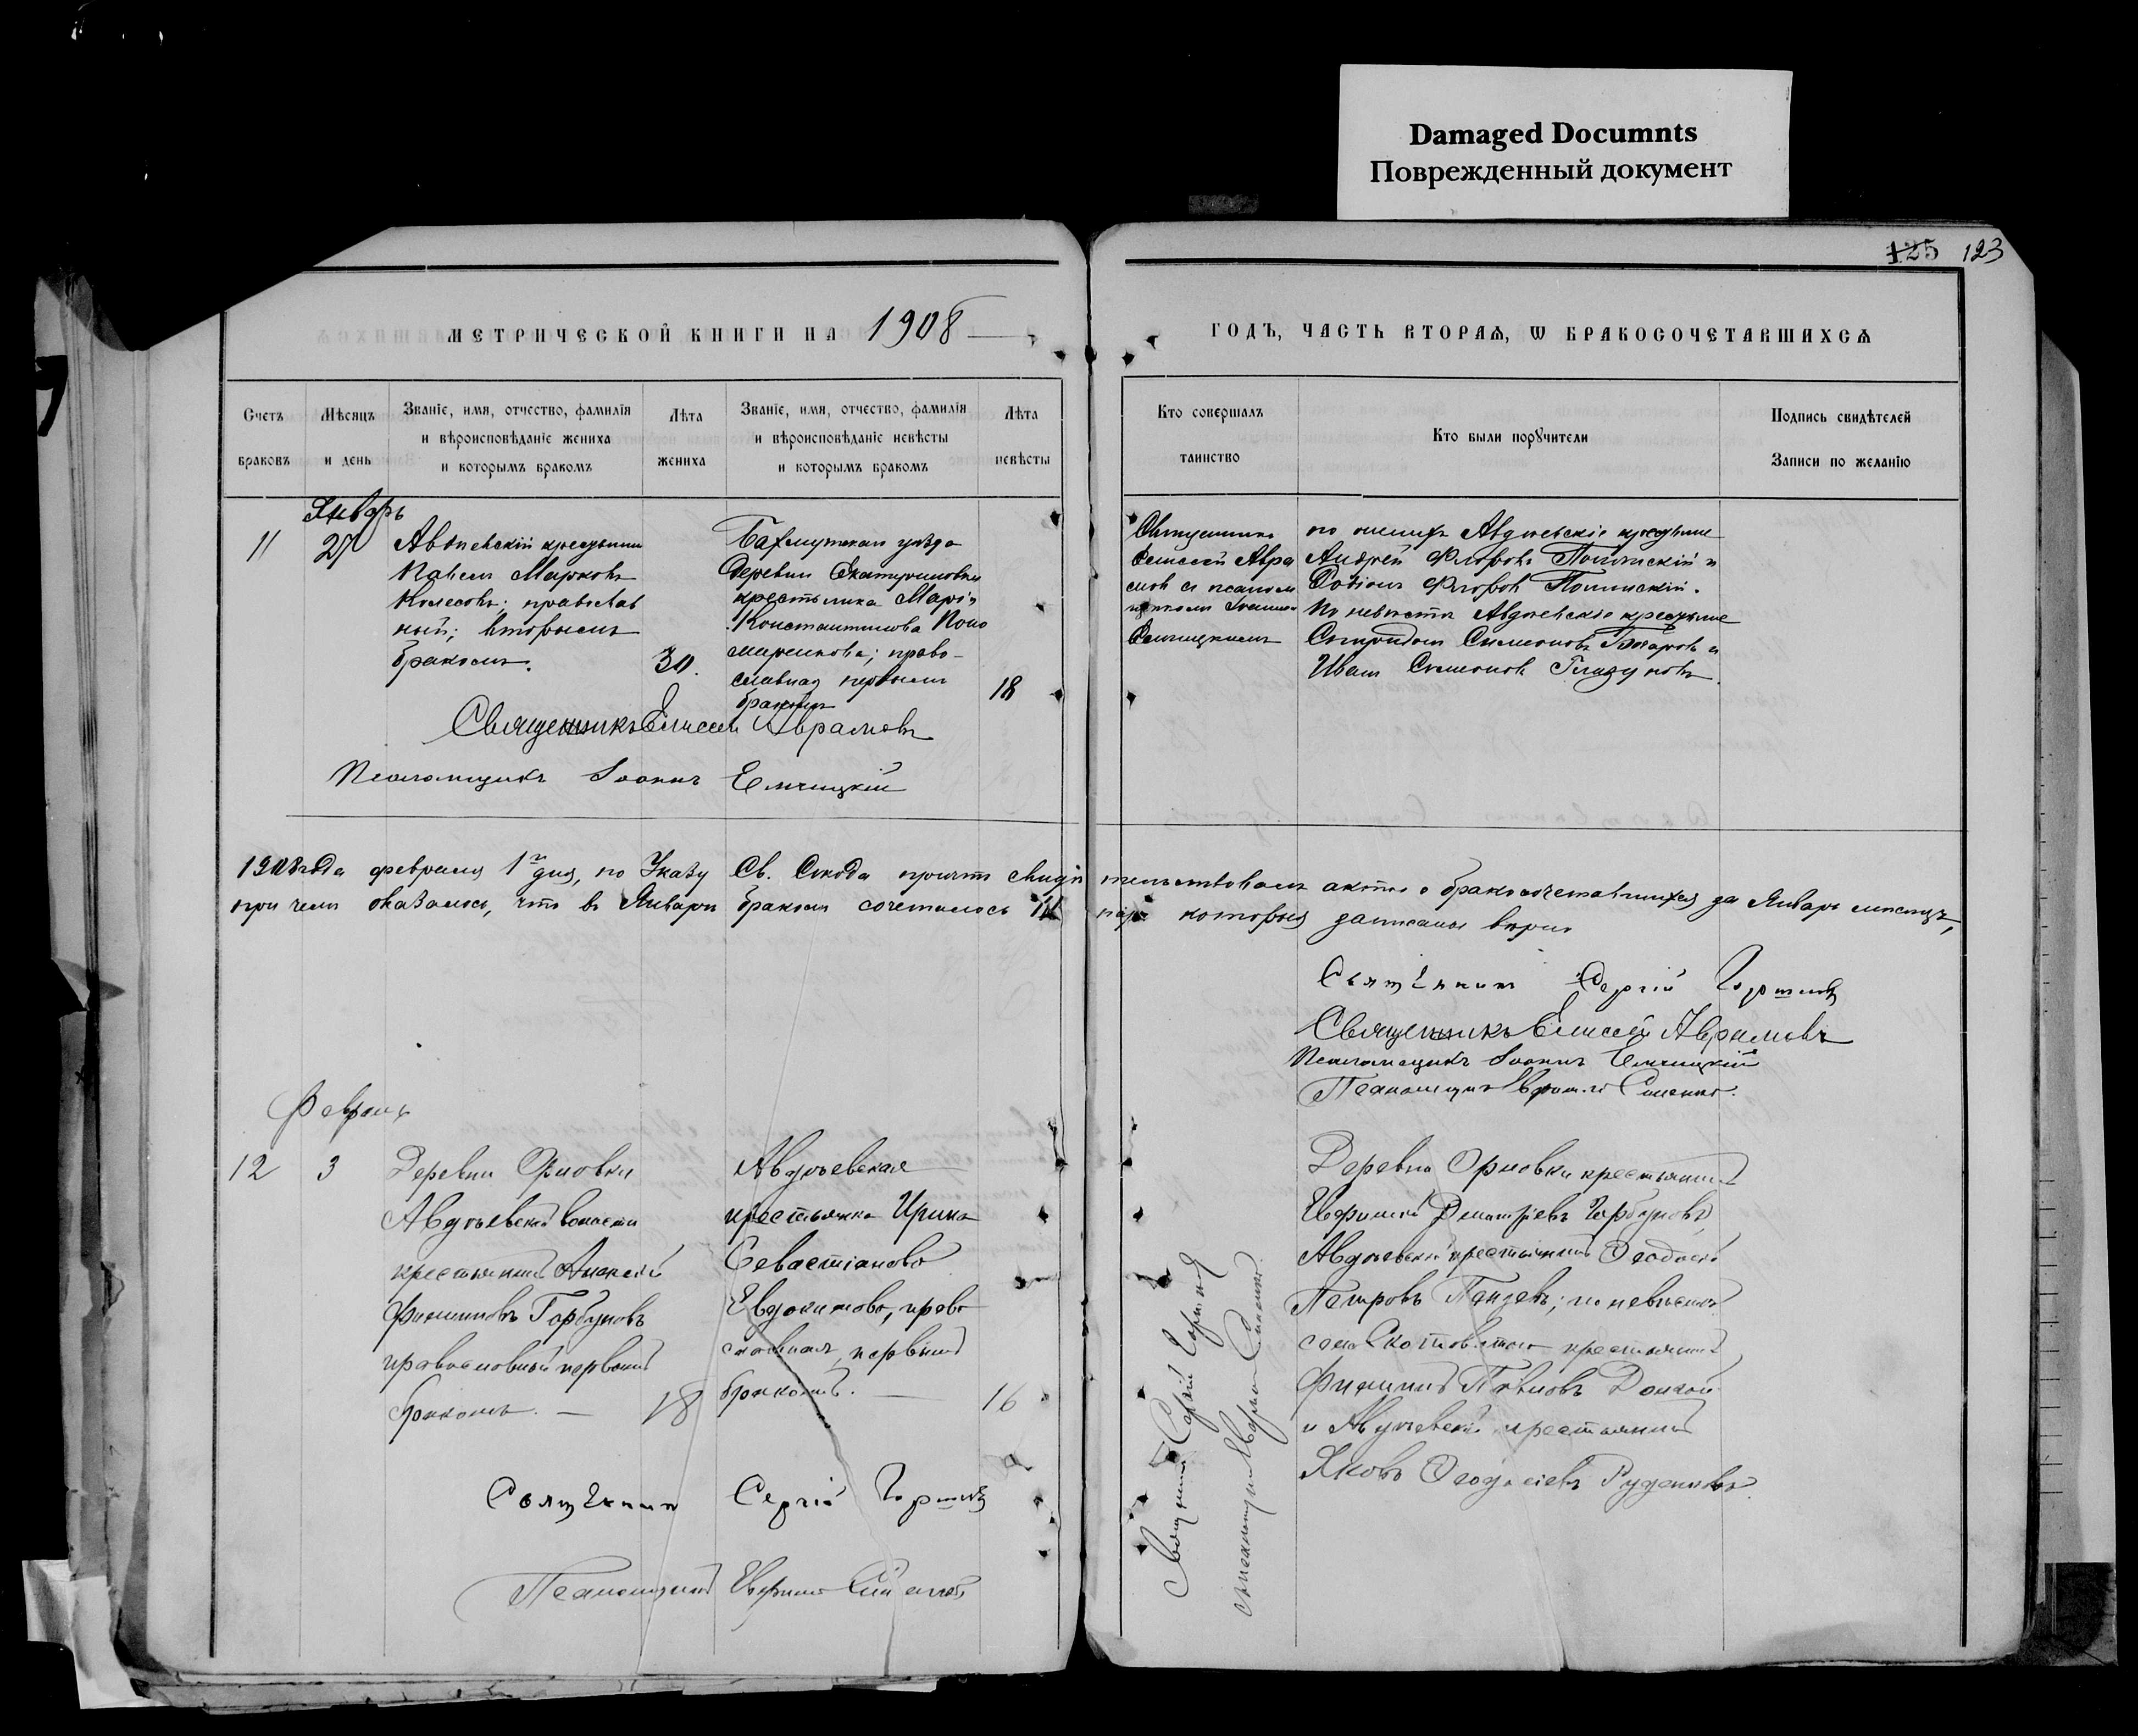 Damaged Documnts
Поврежденный документ
125 123
МЕТРИЧЕСКОЙ КНИГИ НА 1908
ГОДЪ, ЧАСТЬ ВТОРАѦ, Ѡ БРАКОСОЧЕТАВШИХСѦ
Счетъ
браковъ
Мѣсяцъ
и день
Званіе, имя, отчество, фамилія
и вѣроисповѣданіе жениха
и которымъ бракомъ
Лѣта
жениха
Званіе, имя, отчество, фамилія
и вѣроисповѣданіе невѣсты
и которымъ бракомъ
Лѣта
невѣсты
Кто совершалъ
таинство
Кто были порꙋчители
Подпись свидѣтелей
Записи по желанію
Январь
11
27
Павелъ Марковъ
православ
ный; вторымъ
бракомъ.
30.
Бахмутскаго уѣзда
деревни Екатериновки
крестьянка Марія
Константинова Поно
маренкова; право-
славная первымъ
бракомъ
18
Священникъ
Елисей Авра
мовъ съ псалом
щикомъ Іоанномъ
Емчицкимъ
по женихѣ Авдѣевскіе крестьяне
Андрей Фроловъ и
Родіонъ Фроловъ
По невѣстѣ Авдѣевскіе крестьяне
Спиридонъ Симоновъ и
Иванъ Симоновъ Глазуновъ.
Священникъ Елисей Аврамовъ
Псаломщикъ Іоаннъ Емчицкій
1908 года февраля 1го дня, по Указу Св. Синода причтъ свидѣтельствовалъ акты о бракосочетавшихся за Январь мѣсяцъ,
при чемъ оказалось, что въ Январѣ бракомъ сочеталось 11 паръ которыя записаны вѣрно
Священникъ Сергій
Священникъ Елисей Аврамовъ
Псаломщикъ Іоаннъ Емчицкій
Псаломщикъ
Февраль
12
3
Деревни Орловки
Авдѣевской волости
крестьянинъ Алексѣй
Филипповъ Горбуновъ
православный первымъ
бракомъ. —
18
Авдѣевская
крестьянка Ирина
Севастіанова
Евдокимова, право
славная, первымъ
бракомъ. —
16
Деревни Орловки крестьянинъ
Ефимій Димитріевъ Горбуновъ,
Авдѣевскій крестьянинъ Ѳеодосій
Петровъ по невѣстѣ
села Скотоватаго крестьянинъ
Филиппъ Павловъ
и Авдѣевскій крестьянинъ
Яковъ Ѳеодосіевъ Руденковъ.
Священникъ Сергій
Псаломщикъ
Священникъ Сергій